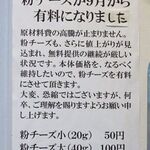 粉チーズが9月から
有料になりました
原材料費の高騰が止まりません。
粉チーズも、さらに値上がりが見
込まれ、無料提供の継続が厳しい
状況です。本体価格を、なるべく
維持したいので、粉チーズを有料
にさせて頂きます。
大変、恐縮ではございますが、何
卒、ご理解を賜りますようお願い
申し上げます。
粉チーズ小(20g) 50円
粉チーズ大(40g) 100円